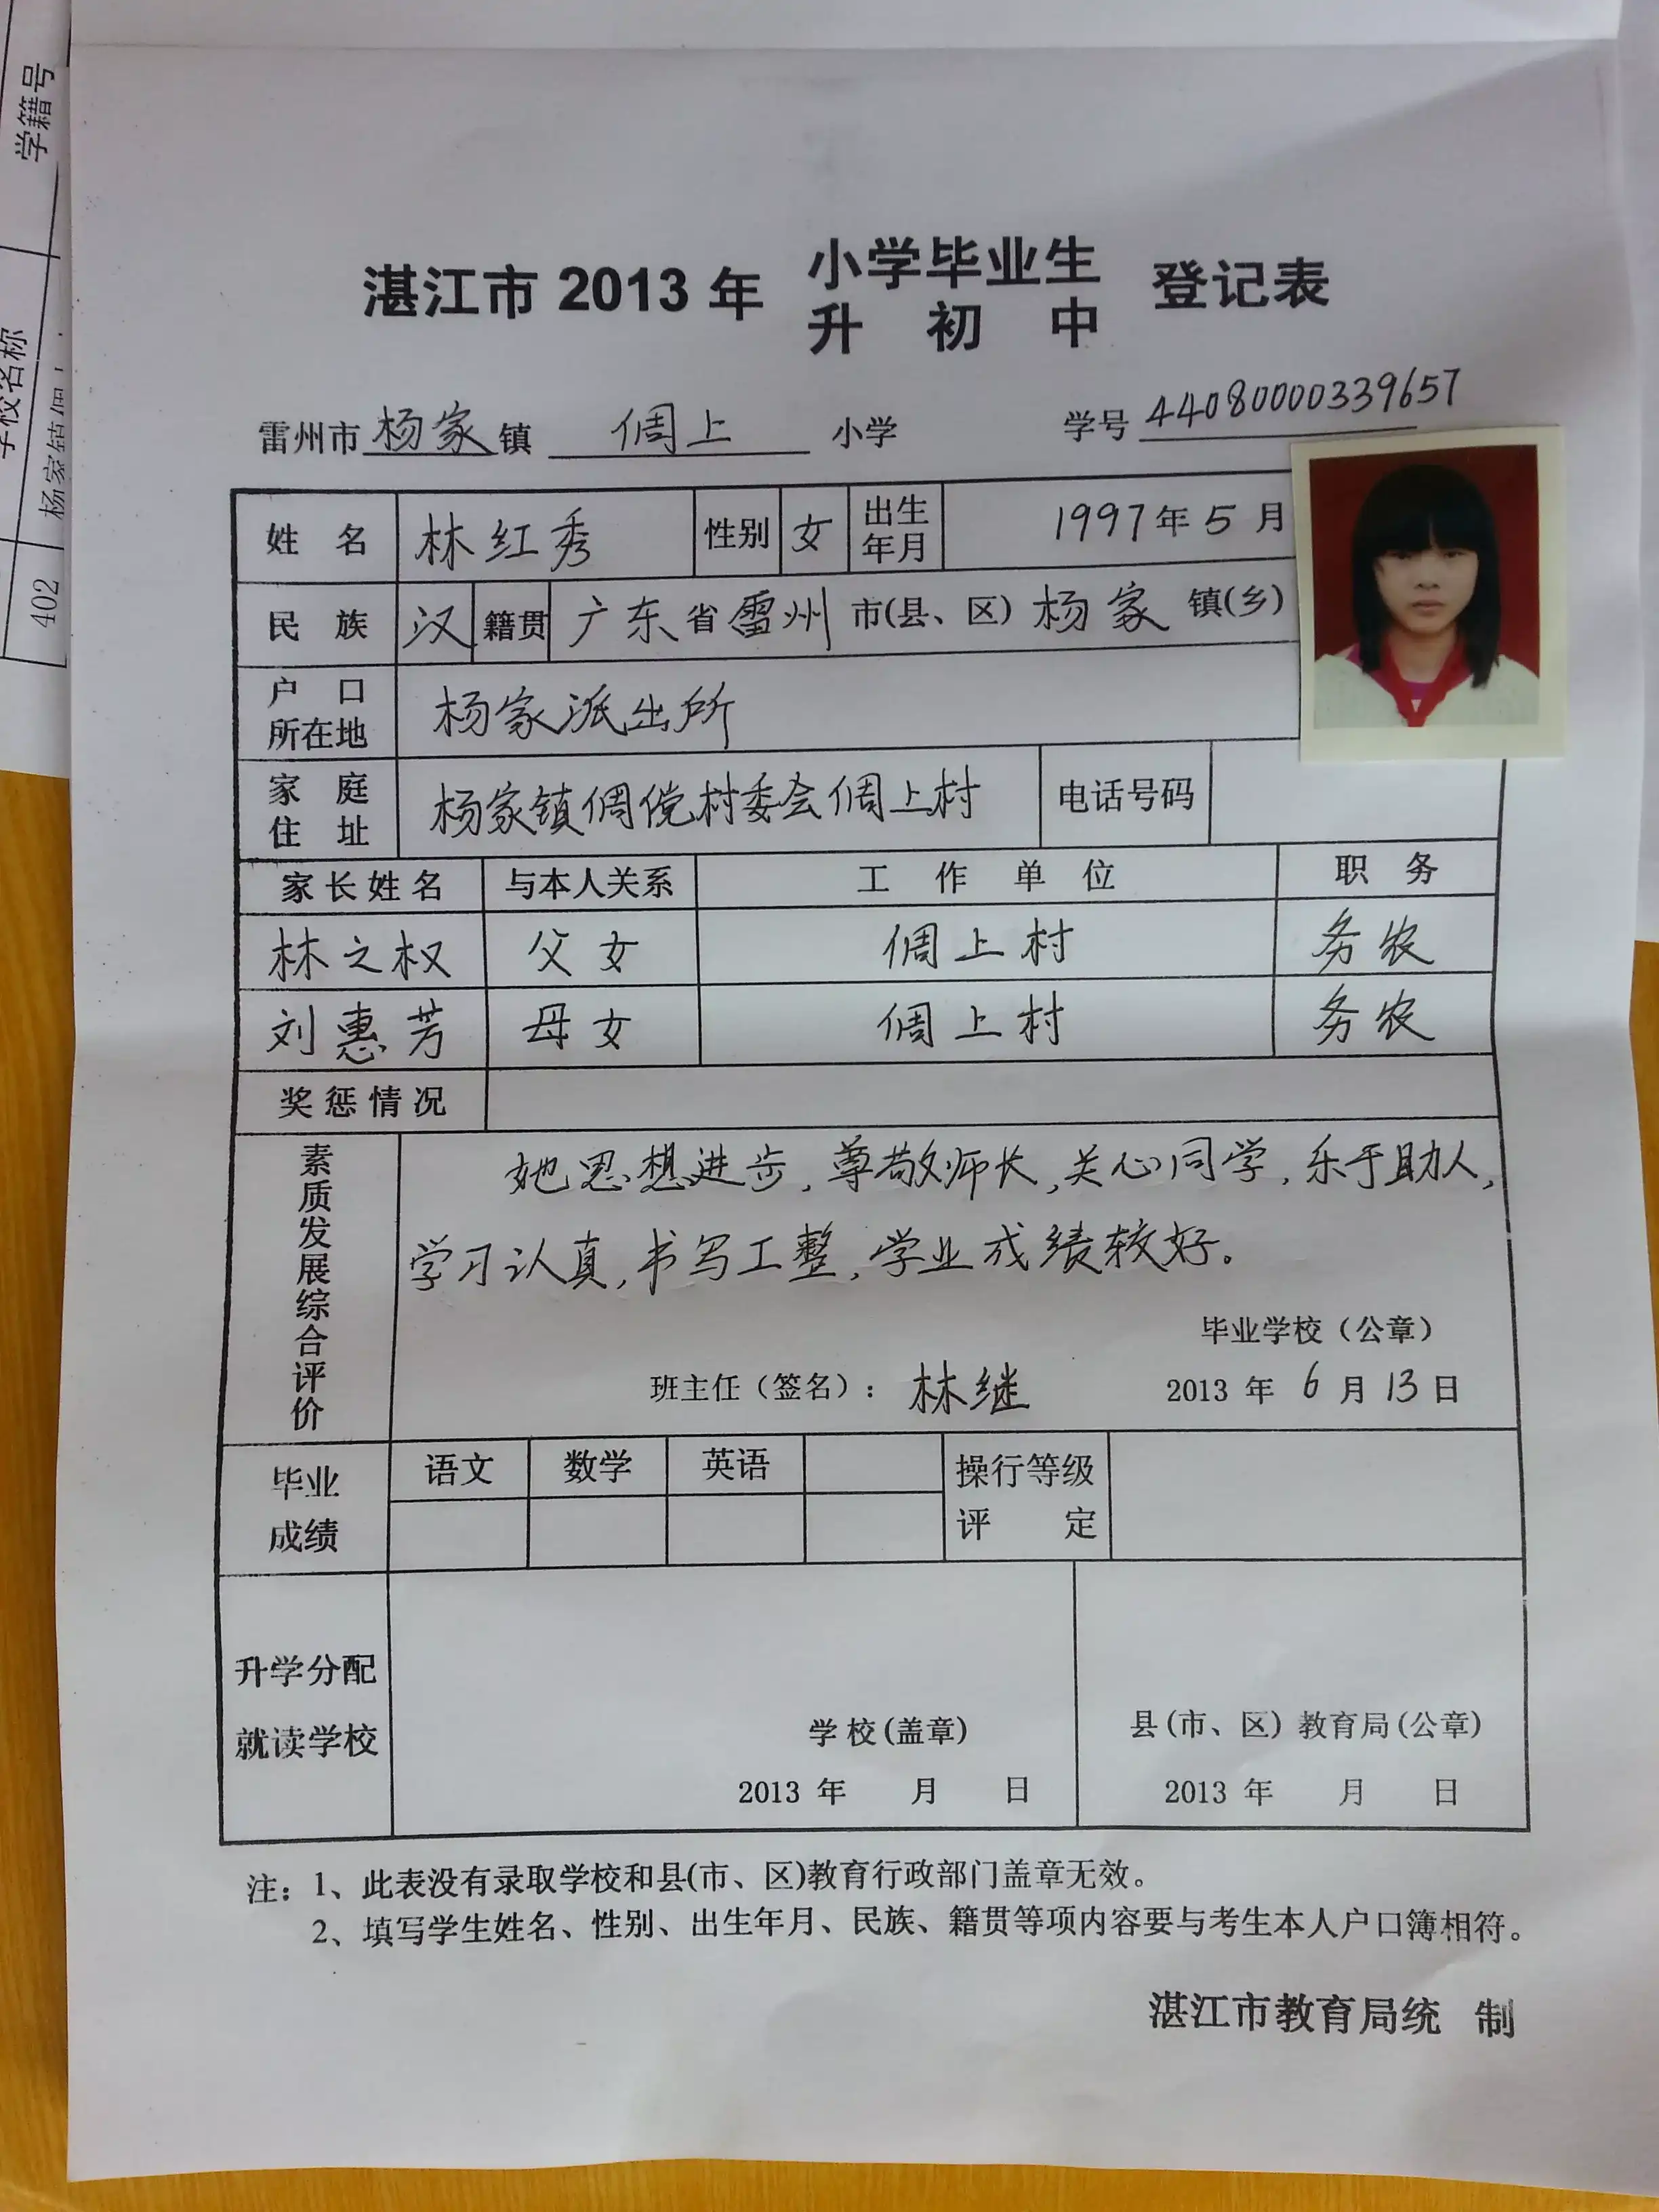 学籍号
学校名称
402
湛江市 2013 年 小学毕业生 登记表
升 初 中
雷州市 杨家 镇 倜上 小学 学号 44080000339657
姓 名 林红秀 性别 女 出生年月 1997年5月
民 族 汉 籍贯 广东省雷州市(县、区)杨家镇(乡)
户口所在地 杨家派出所
家庭住址 杨家镇倜傥村委会倜上村 电话号码
家长姓名 与本人关系 工 作 单 位 职 务
林之权 父女 倜上村 务农
刘惠芳 母女 倜上村 务农
奖惩情况
素质发展综合评价
她思想进步,尊敬师长,关心同学,乐于助人,
学习认真,书写工整,学业成绩较好。
毕业学校(公章)
班主任(签名): 林继 2013 年 6 月 13 日
毕业成绩 语文 数学 英语 操行等级评定
升学分配
就读学校
学校(盖章) 县(市、区)教育局(公章)
2013 年 月 日 2013 年 月 日
注:1、此表没有录取学校和县(市、区)教育行政部门盖章无效。
2、填写学生姓名、性别、出生年月、民族、籍贯等项内容要与考生本人户口簿相符。
湛江市教育局统 制